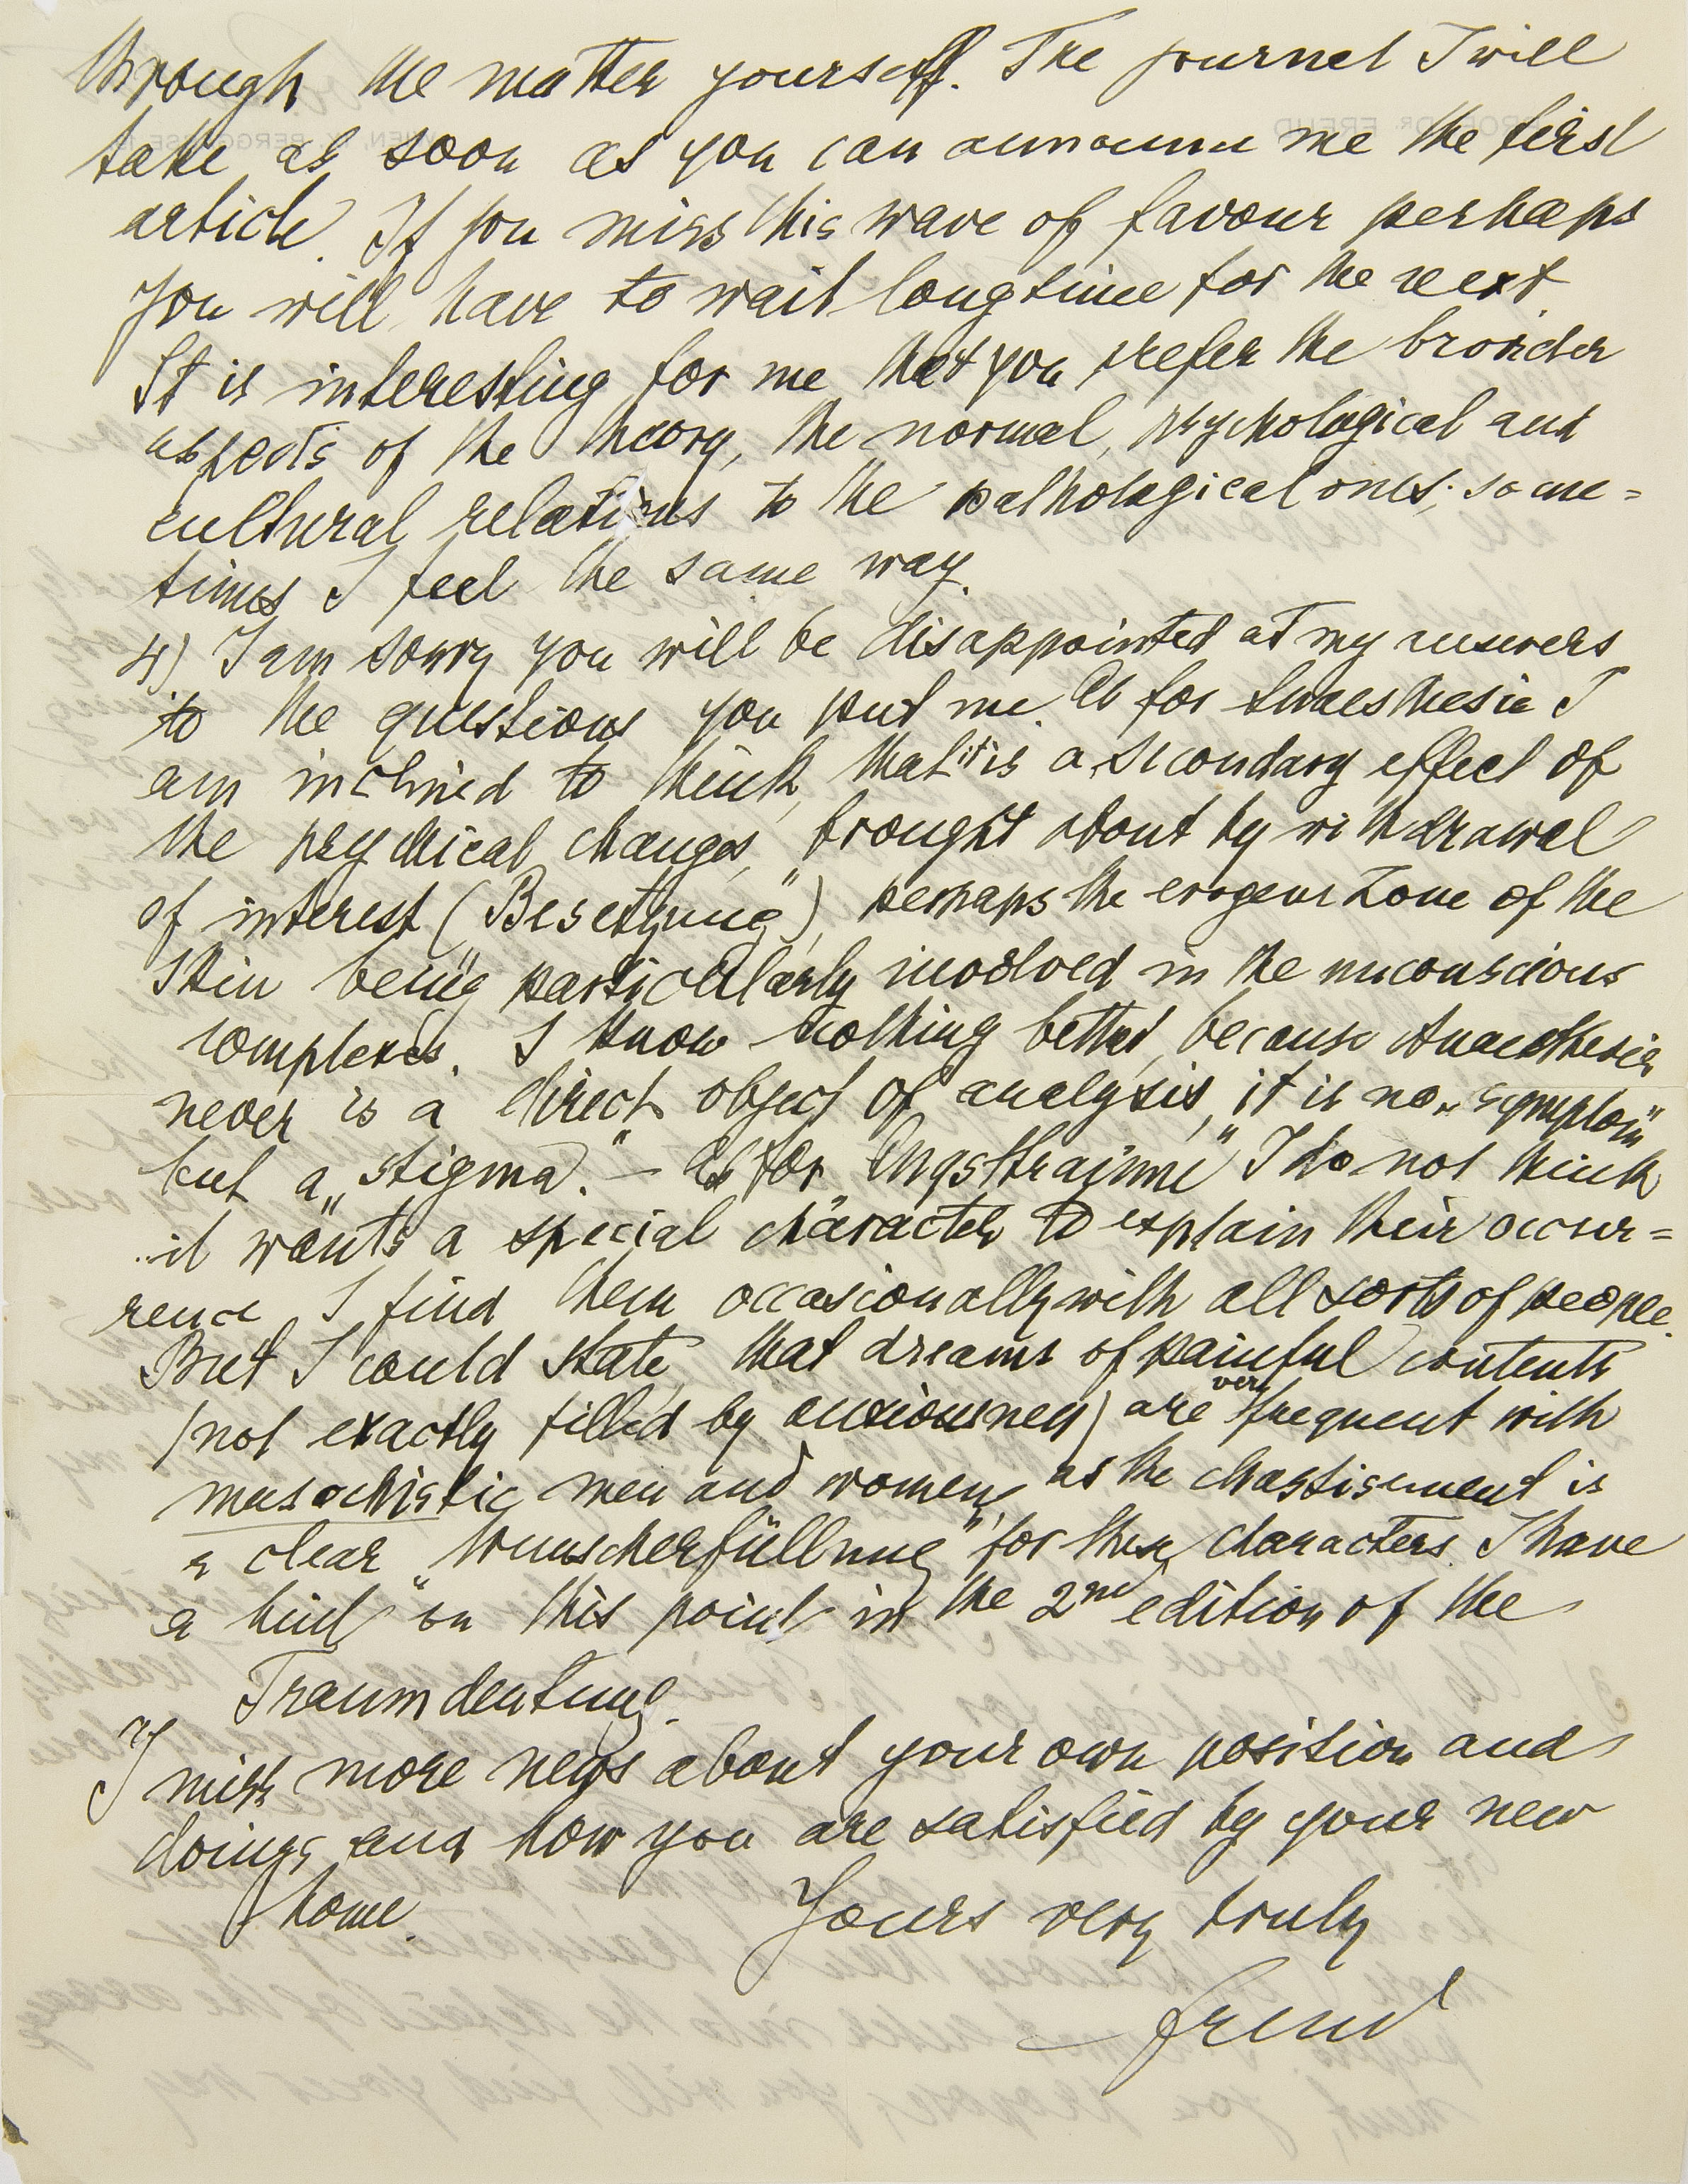 through the matter yourself. The journal I will
take as soon as you can announce me the first
article. If you miss this wave of favour perhaps
you will have to wait longtime for the next.
It is interesting for me that you prefer the broader
aspects of the theory, the normal, psychological and
cultural relations to the pathological ones; some=
times I feel the same way.
4) I am sorry you will be disappointed at my answers
to the questions you put me. As for Anaesthesia I
am inclined to think, that it is a secondary effect of
the psychical changes, brought about by withdrawal
of interest („Besetzung"), perhaps the erogene zone of the
skin being particularly involved in the unconscious
complexes. I know nothing better, because Anaesthesia
never is a direct object of analysis, it is no „symptom"
but a „stigma". – As for „Angstträume" I do not think
it wants a special character to explain their occur=
rence I find them occasionally with all sorts of people.
But I could state, that dreams of painful contents
(not exactly filled by anxiousness) are very frequent with
masochistic men and women, as the chastisement is
a clear „Wunscherfüllung" for these characters. I have
a hint on this point in the 2nd edition of the
Traumdeutung.
I miss more news about your own position and
doings and how you are satisfied by your new
home.
Yours very truly
Freud